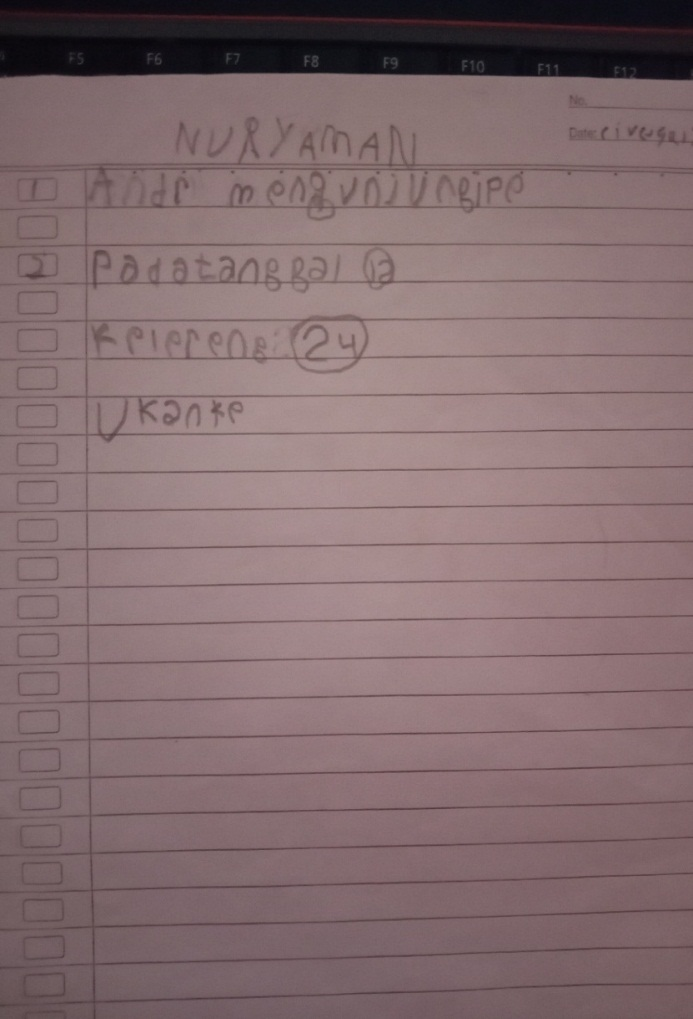 F5 F6 F7 F8 F9 F10 F11 F12
No.
NURYAMAN
Date:
1 Andr mengunjungipe
2 Padatanggal 12
Kelereng 24
Ukanke